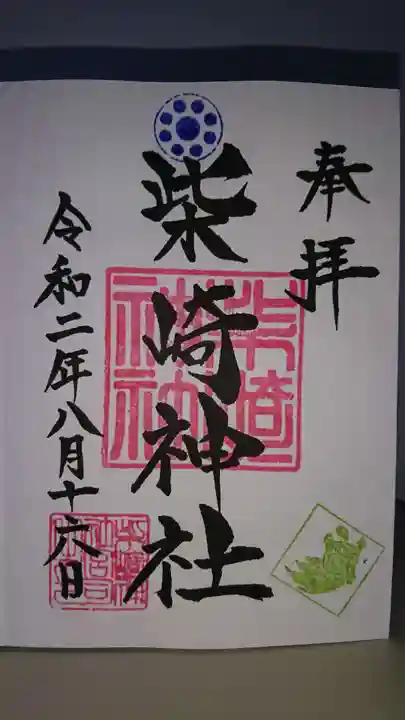 奉拝
柴崎神社
令和二年八月十六日
柴崎神社